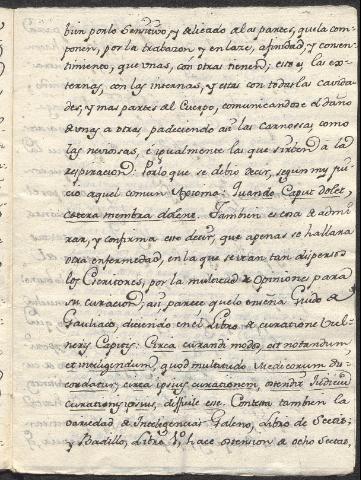 bien por lo Sensitivo, y delicado de las partes, que la com-
ponen, por la trabazon y enlaze, afinidad, y consen-
timiento, que unas, con otras tienen; estas, las ex-
ternas, con las internas, y estas con todas las cavida-
des, y mas partes del Cuerpo, comunicandose el daño
de unas a otras, padeciendo asi las carnossas, como
las nerviosas, e igualmente las que sirben a la
respiracion. Por lo que se debio decir, segun my jui-
cio aquel comun Axioma: Quando Caput dolet,
cetera membra dolent. Tambien es cosa de admi-
rar, y confirma este decir, que apenas se hallara
otra enfermedad, en la que se ayan tan dispersos
los Escritores, por la multitud de Opiniones para
su curacion; asi parece que lo enseña Guido de
Gauliaco, diciendo en el Libro de curatione Vul-
neris Capitis: Circa curandi modos, est notandum,
et inteligendum, quod multitudo Medicorum dis-
cordatur, circa ipsius curationem, ostendit Judicium
curationis ipsius, dificile esse. Contesta tambien la
variedad de Inteligencias Galeno, Libro de Sectis;
y Badillo, Libro 1º hace ostension de ocho Sectas,